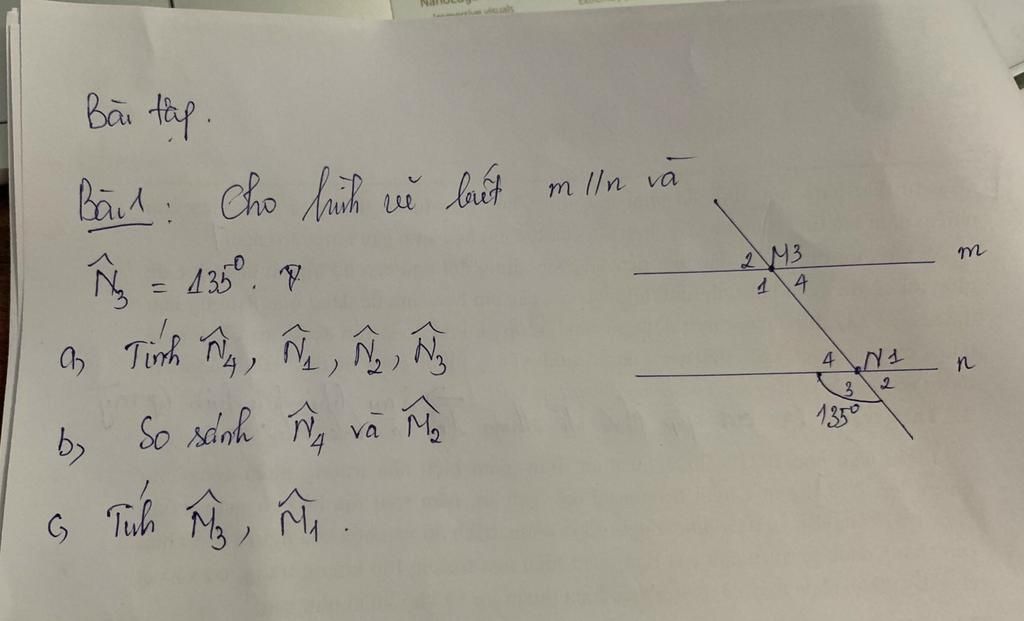 Bài tập.
Bài 1: Cho hình vẽ biết m // n và
N̂₃ = 135⁰.
a, Tính N̂₄, N̂₁, N̂₂, N̂₃
b, So sánh N̂₄ và M̂₂
c, Tính M̂₃, M̂₁.
2 M 3
m
1 4
4 N 1
n
3 2
135⁰